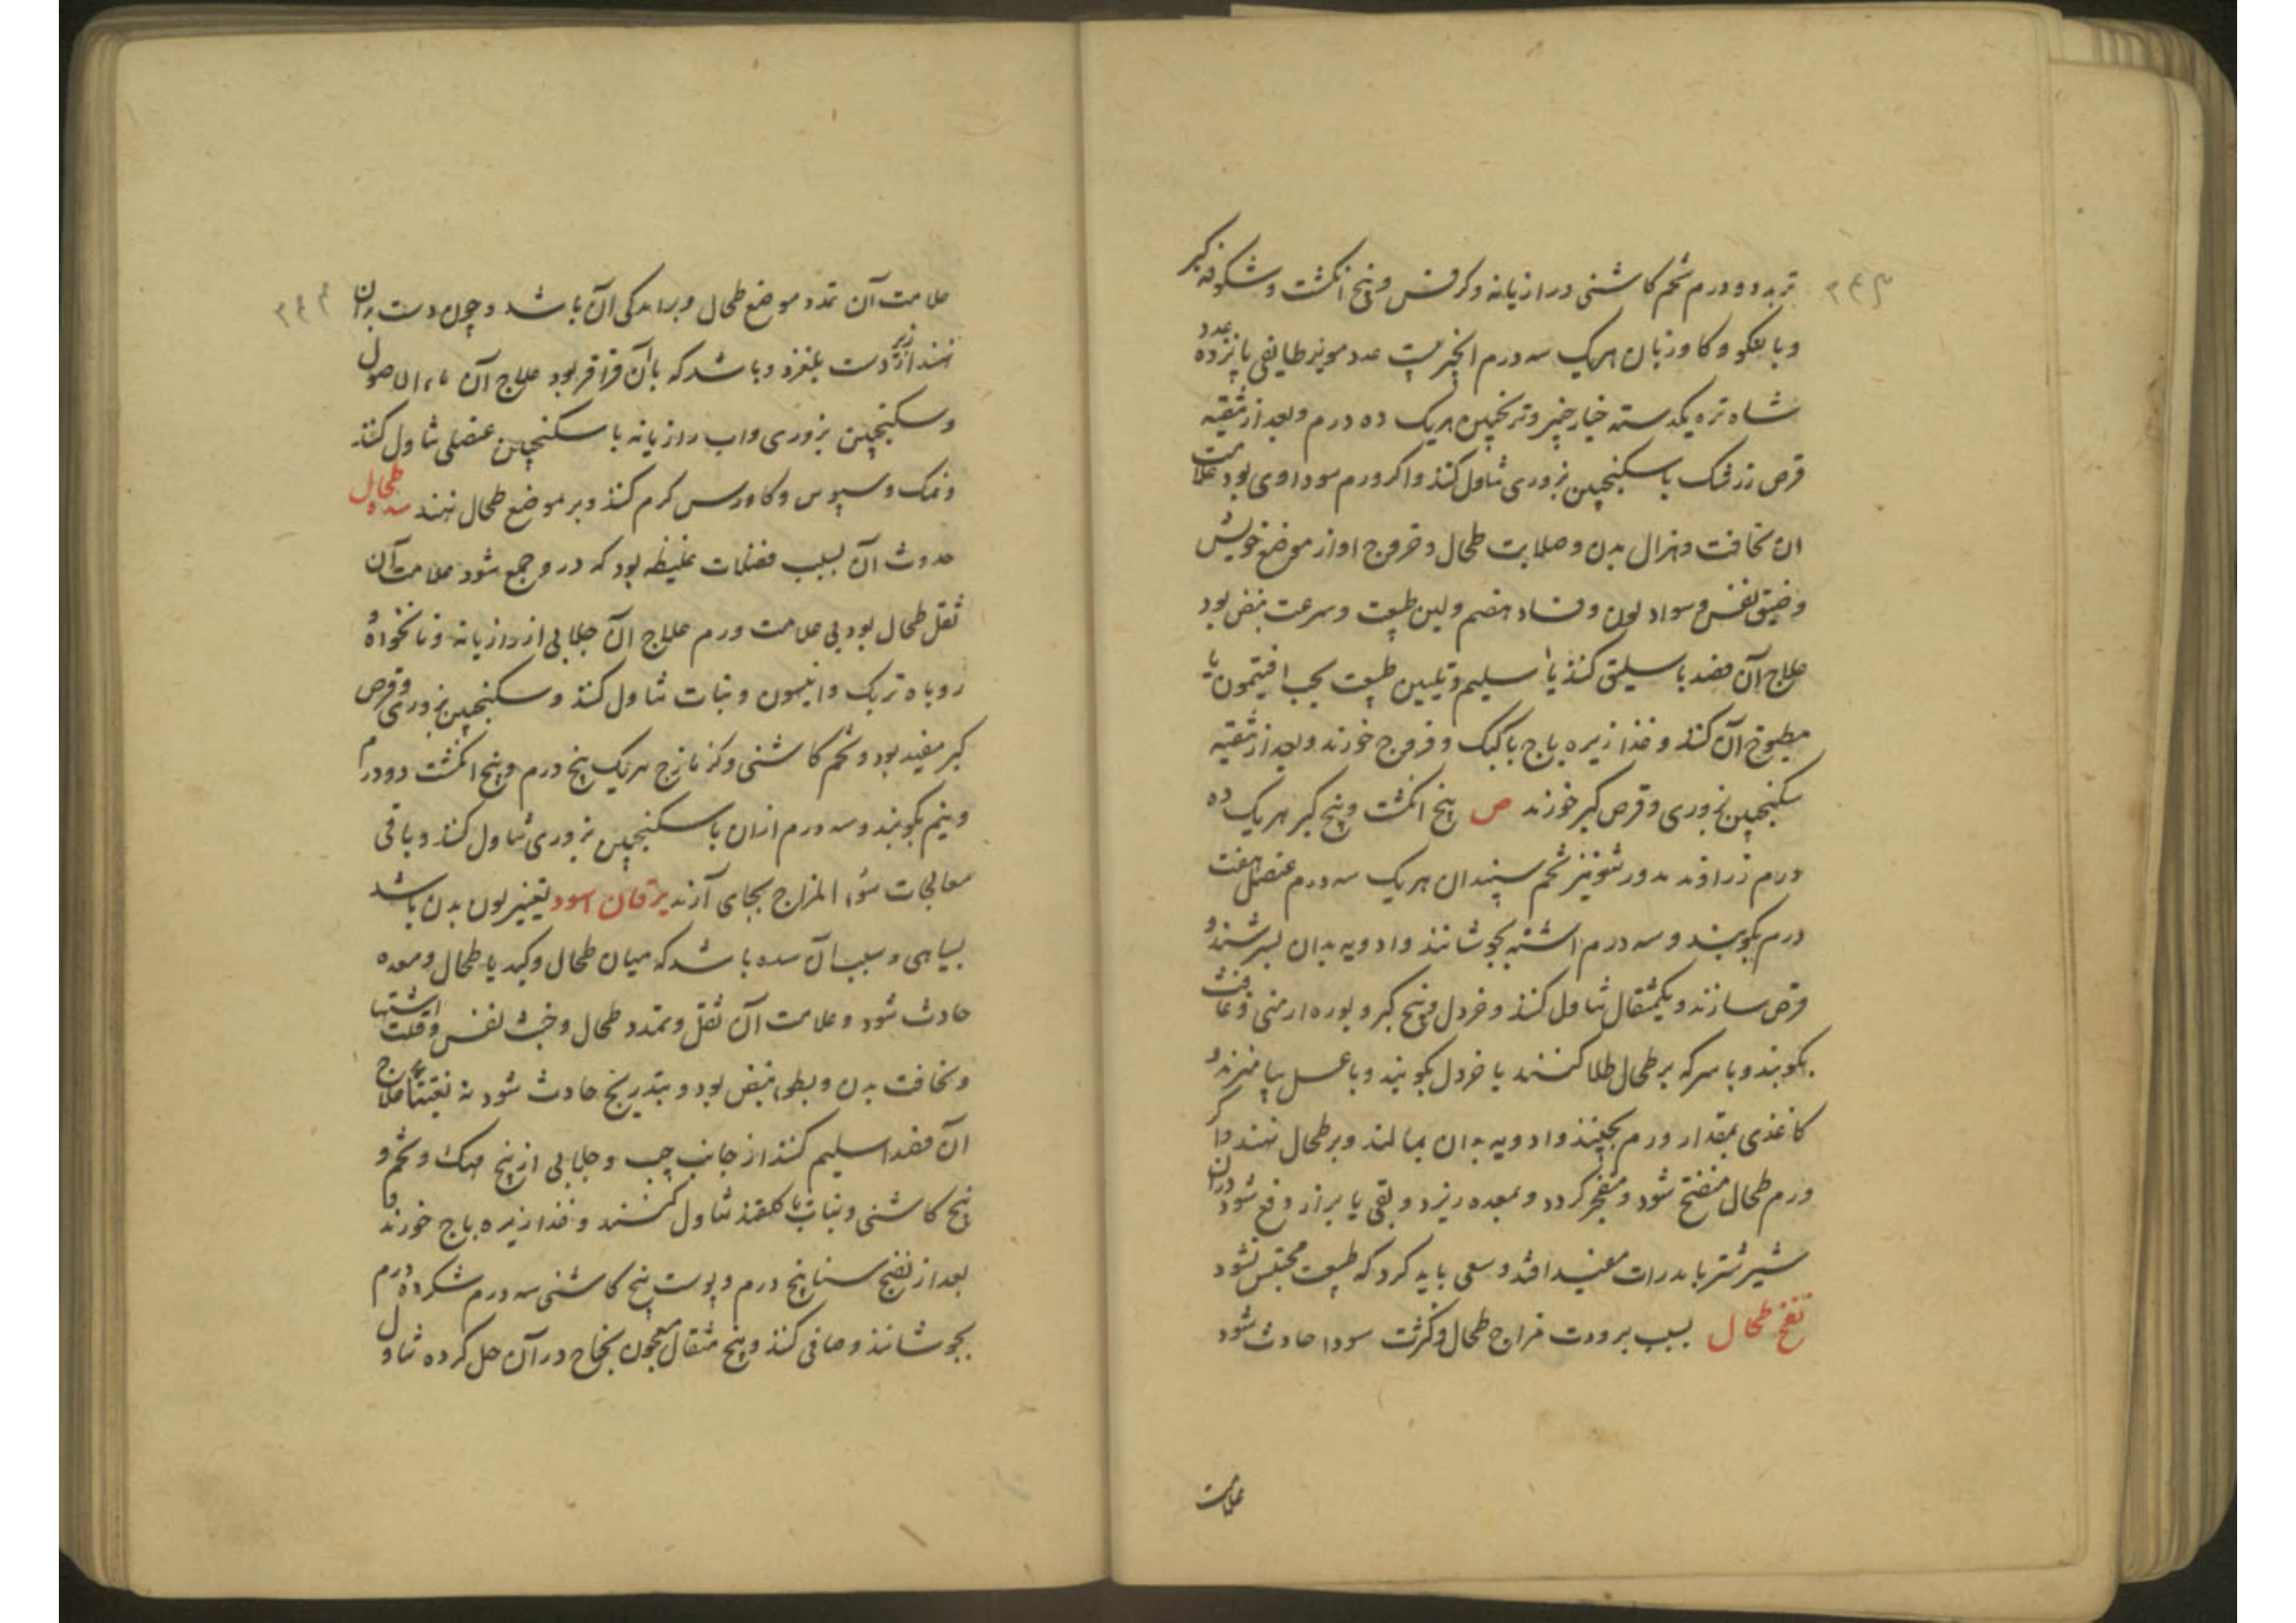 تربد دو درم تخم کاشنی و رازیانه و کرفس و پنج انکشت و شکوفه کبر
و بالنکو و کاوزبان هریک سه درم انجیر بیست عدد مویز طایفی پانزده عدد
شاه تره یکدسته خیارچنبر و ترنجبین هریک ده درم و بعد از تنقیه
قرص زرشک با سکنجبین بزوری تناول کنند و اکر ورم سوداوی بود علامت
ان نحافت و هزال بدن و صلابت طحال و خروج او از موضع خویش
و ضیق نفس و سواد لون و فساد هضم و لین طبیعت و سرعت نبض بود
علاج آن فصد باسلیق کنند یا اسلیم و تلیین طبیعت بحب افتیمون یا
مطبوخ آن کنند و غذا زیره باج با کبک و فروج خورند و بعد از تنقیه
سکنجبین بزوری و قرص کبر خورند ص پنج انکشت و بیخ کبر هریک ده
درم زراوند مدور شونیز تخم سپندان هریک سه درم عنصل هفت
درم بکوبند و سه درم اشنه بجوشانند و ادویه بدان بسرشند و
قرص سازند و یکمثقال تناول کنند و خردل و بیخ کبر و بوره ارمنی و غافث
بکوبند و با سرکه بر طحال طلا کنند یا خردل بکوبند و با عسل بیامیزند و
کاغذی بمقدار ورم بچینند و ادویه بدان بمالند و بر طحال نهند و اکر
ورم طحال منفتح شود و منفجر کردد و بمعده ریزد و بقی یا براز دفع شود دران
شیر شتر با مدرات مفید افتد و سعی باید کرد که طبیعت محتبس نشود
نفخ طحال بسبب برودت مزاج طحال و کثرت سودا حادث شود
علامت
علامت آن تمدد موضع طحال و برامدکی آن باشد و چون دست بران
نهند از زیر دست بلغزد و باشد که بآن قراقر بود علاج آن ماء الاصول
و سکنجبین بزوری و اب رازیانه با سکنجبین عنصلی تناول کنند
و نمک و سبوس و کاورس کرم کنند و بر موضع طحال نهند سده طحال
حدوث آن بسبب فضلات غلیظه بود که در و جمع شود علامت آن
ثقل طحال بود بی علامت ورم علاج ان جلابی از رازیانه و نانخواه و
روباه تربک و انیسون و نبات تناول کنند و سکنجبین بزوری و قرص
کبر مفید بود و تخم کاشنی و کزمازج هریک پنج درم و پنج انکشت دو درم
و نیم بکوبند و سه درم ازان با سکنجبین بزوری تناول کنند و باقی
معالجات سوء المزاج بجای آرند یرقان اسود تغییر لون بدن باشد
بسیاهی و سبب آن سده باشد که میان طحال و کبد یا طحال و معده
حادث شود و علامت آن ثقل و تمدد طحال و خبث نفس و قلت اشتها
و نحافت بدن و بطوء نبض بود و بتدریج حادث شود نه بغتتا علاج
آن فصد اسلیم کنند از جانب چپ و جلابی از بیخ مهک و تخم و
بیخ کاشنی و نبات یا کلقند تناول کنند و غذا زیره باج خورند و
بعد از نضج سنا پنج درم و پوست بیخ کاشنی سه درم شکر ده درم
بجوشانند و صافی کنند و پنج مثقال معجون نجاح در آن حل کرده تناول